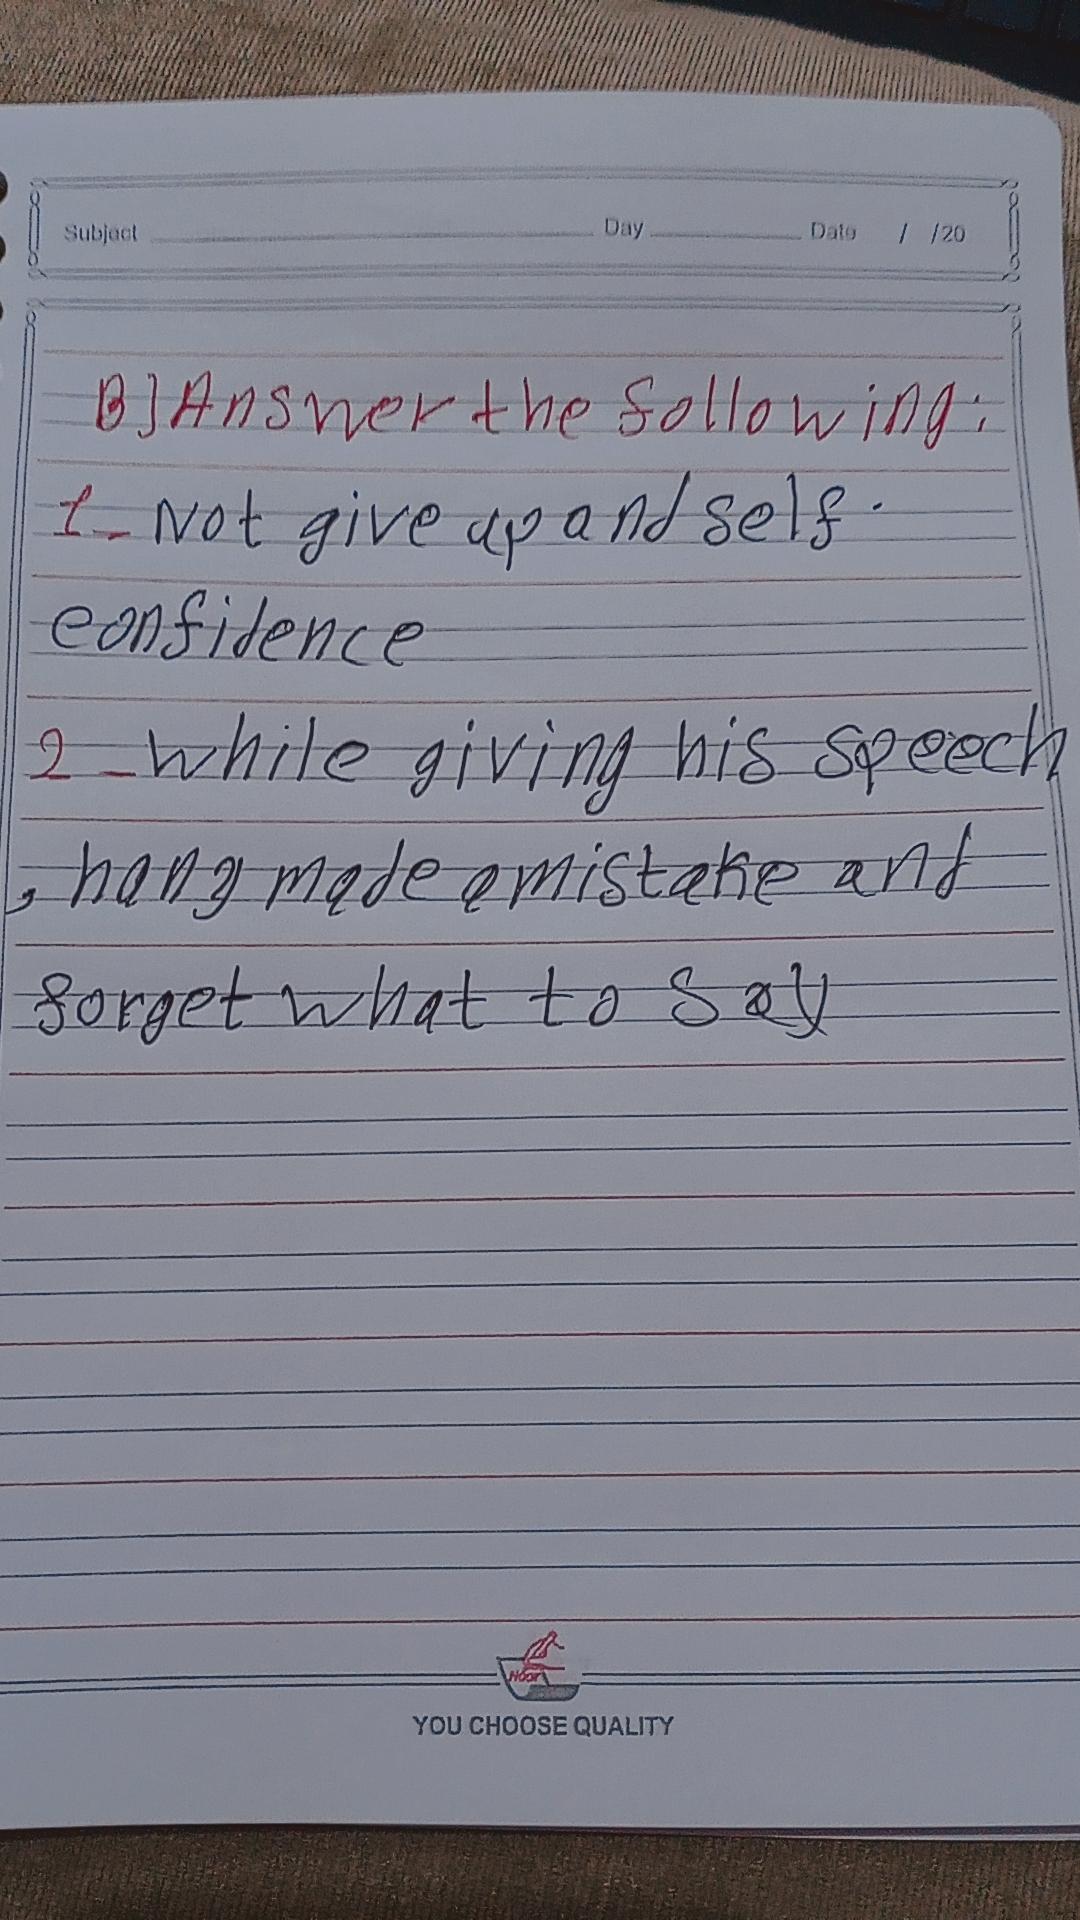 Subject Day Date / /20
B] Answer the following:
1- Not give up and self.
confidence
2- while giving his speech
, hang made a mistake and
forget what to say
Noor
YOU CHOOSE QUALITY